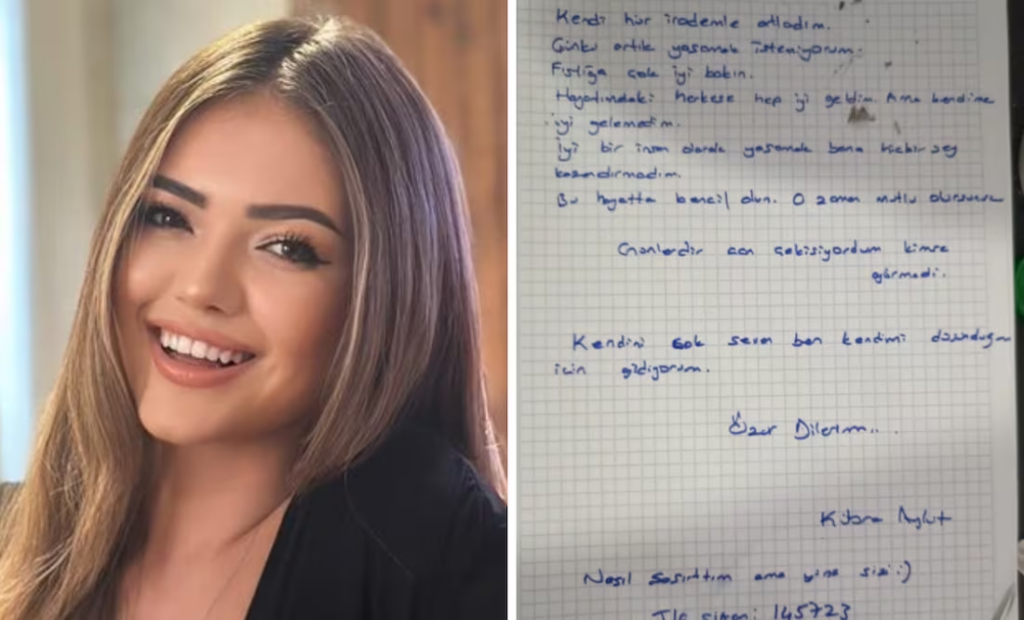 Kendi hür irademle atladım.
Çünkü artık yaşamak istemiyorum.
Fıstığa çok iyi bakın.
Hayatımdaki herkese hep iyi geldim. Ama kendime
iyi gelemedim.
İyi bir insan olarak yaşamak bana hiçbir şey
kazandırmadım.
Bu hayatta bencil olun. O zaman mutlu olursunuz
Günlerdir acı çekişiyordum kimse
görmedi.
Kendini çok seven ben kendimi düşündüğüm
için gidiyorum.
Özür Dilerim...
Kübra Aykut
Nasıl şaşırttım ama yine sizi:)
145723